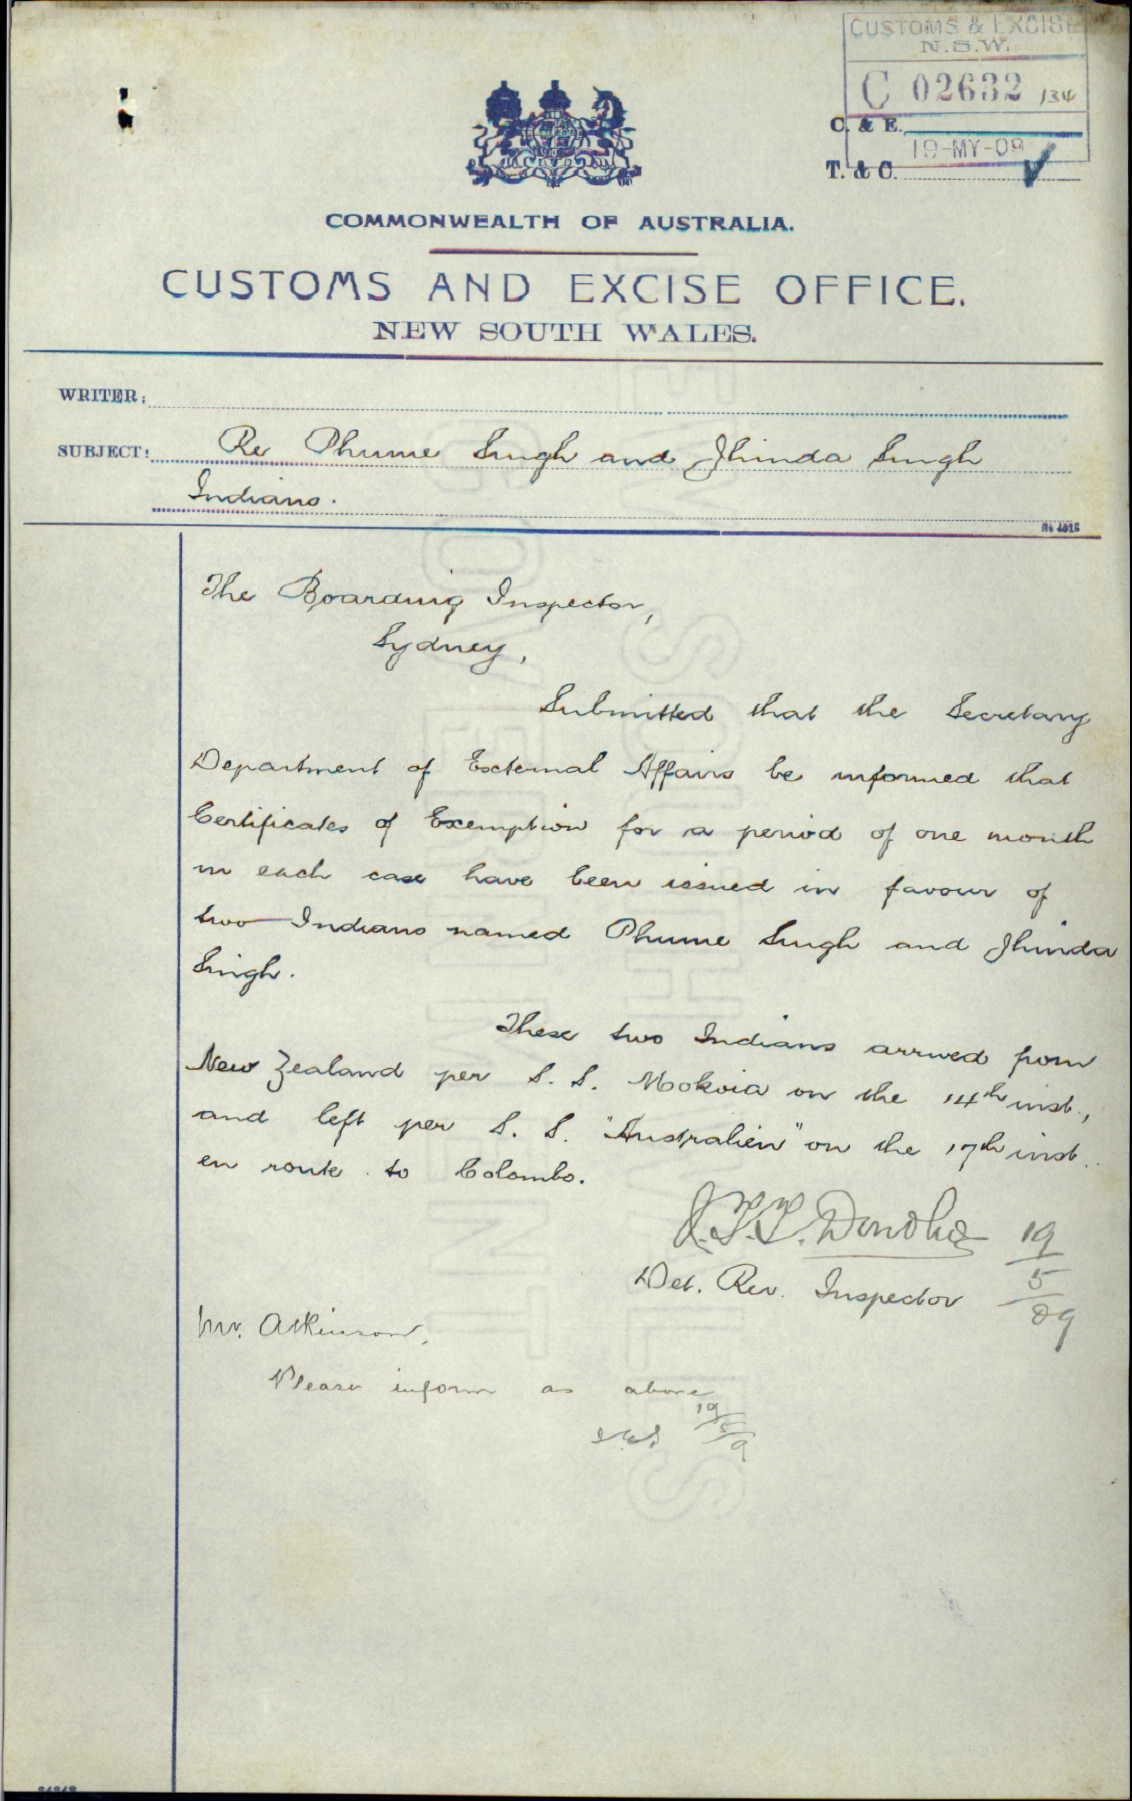 CUSTOMS & EXCISE
N.S.W.
C 02632 /34
C. & E.
19-MY-09
T. & C.
COMMONWEALTH OF AUSTRALIA.
CUSTOMS AND EXCISE OFFICE.
NEW SOUTH WALES.
WRITER:
SUBJECT: Re Phume Singh and Jhinda Singh
Indians.
The Boarding Inspector,
Sydney,
Submitted that the Secretary
Department of External Affairs be informed that
Certificates of Exemption for a period of one month
in each case have been issued in favour of
two Indians named Phume Singh and Jhinda
Singh.
These two Indians arrived from
New Zealand per S. S. Mokoia on the 14th inst.,
and left per S. S. "Australien" on the 17th inst.
en route to Colombo.
J.T.T. Donohoe 19
Det. Rev. Inspector 5
09
Mr. Atkinson,
Please inform as above
19
5
9
SOUTH WALES
GOVERNMENT